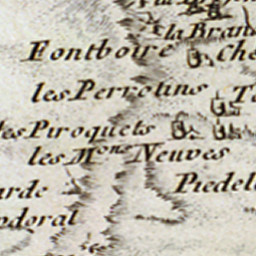 la Bran
Fontboire Che
les Perrotins
les Piroquets
les M.ons Neuves
Piedel
arde
odoral